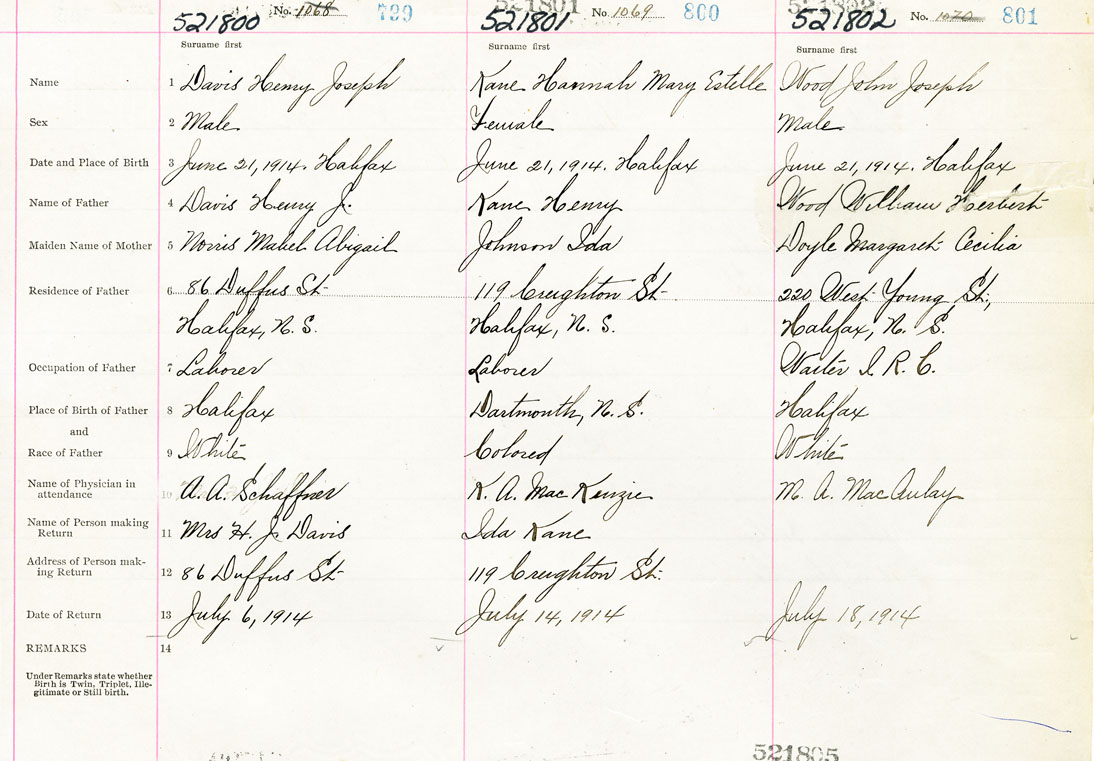 521800 No. 1068 799 521801 No. 1069 800 521802 No. 1070 801
Surname first Surname first Surname first
Name 1 Davis Henry Joseph Kane Hannah Mary Estelle Wood John Joseph
Sex 2 Male Female Male
Date and Place of Birth 3 June 21, 1914. Halifax June 21, 1914. Halifax June 21, 1914. Halifax
Name of Father 4 Davis Henry J. Kane Henry Wood William Herbert
Maiden Name of Mother 5 Norris Mabel Abigail Johnson Ida Doyle Margaret Cecilia
Residence of Father 6 86 Duffus St 119 Creighton St 220 West Young St,
Halifax, N. S. Halifax, N. S. Halifax, N. S.
Occupation of Father 7 Laborer Laborer Waiter I. R. C.
Place of Birth of Father 8 Halifax Dartmouth, N. S. Halifax
and
Race of Father 9 White Colored White
Name of Physician in
attendance 10 A. A. Schaffner K. A. MacKenzie M. A. MacAulay
Name of Person making
Return 11 Mrs H. J. Davis Ida Kane
Address of Person mak-
ing Return 12 86 Duffus St 119 Creighton St.
Date of Return 13 July 6, 1914 July 14, 1914 July 18, 1914
REMARKS 14
Under Remarks state whether
Birth is Twin, Triplet, Ille-
gitimate or Still birth.
521805